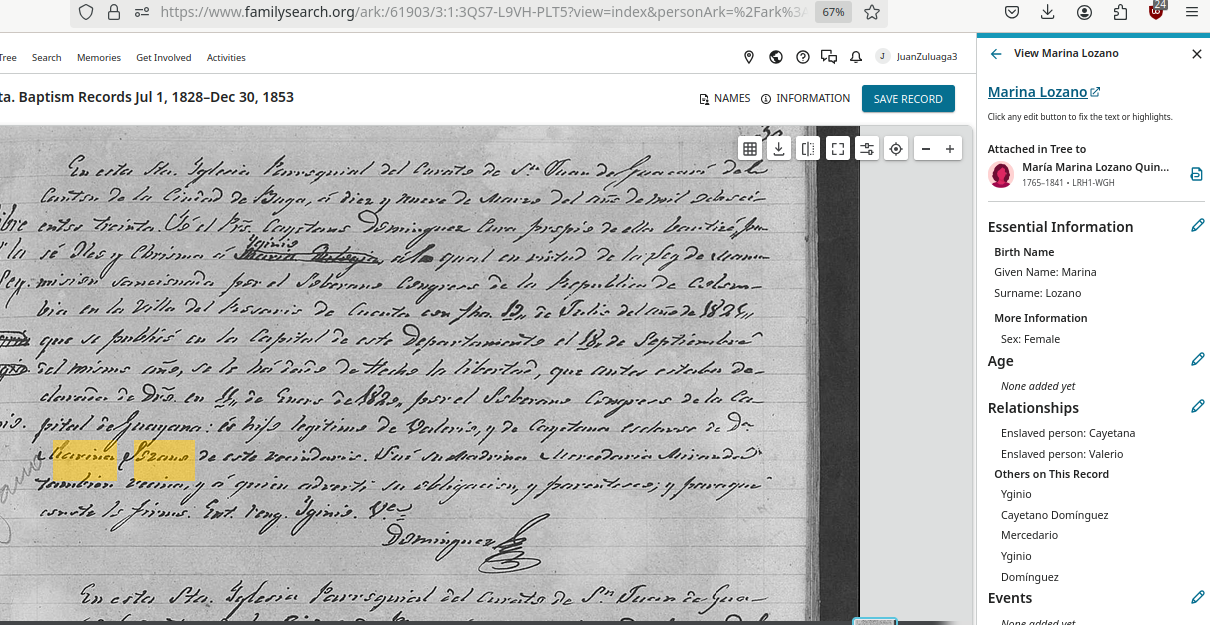 https://www.familysearch.org/ark:/61903/3:1:3QS7-L9VH-PLT5?view=index&personArk=%2Fark%3A
67%
24
Tree
Search
Memories
Get Involved
Activities
J
JuanZuluaga3
ta. Baptism Records Jul 1, 1828–Dec 30, 1853
NAMES
INFORMATION
SAVE RECORD
En esta Sta. Yglesia Parroquial del Curato de Sn. Juan de Guacarí del
Canton de la Ciudad de Buga, á diez y nueve de Marzo del año de mil ochoci-
entos treinta. Yó el Pro. Cayetano Dominguez Cura propio de ella bautizé, pu
se Oleo y Chrisma á
Yginio
al qual en virtud de la Ley de manu
mision sancionada por el Soberano Congreso de la Republica de Colom-
bia en la Villa del Rosario de Cucuta con fha. de Julio del año de
que se publicó en la Capital de este Departamento el de Septiembre
del mismo año, se le ha la libertad, que antes estaba de-
clarada de Dro. en 11, de Enero de 1820,, por el Soberano Congreso de la Ca-
pital de Guayana: és hijo legitimo de Valerio, y de Cayetana esclavos de Da
Marina Lozano de este vecindario. Fué su Madrina Mercedaria Miranda
tambien vecina, y á quien advertí su obligacion, y parentesco; y para que
conste lo firmo. Ent. reng. Yginio. Ve
Dominguez
En esta Sta. Yglesia Parroquial del Curato de Sn. Juan de Gua-
View Marina Lozano
Marina Lozano
Click any edit button to fix the text or highlights.
Attached in Tree to
María Marina Lozano Quin...
1765–1841 • LRH1-WGH
Essential Information
Birth Name
Given Name: Marina
Surname: Lozano
More Information
Sex: Female
Age
None added yet
Relationships
Enslaved person: Cayetana
Enslaved person: Valerio
Others on This Record
Yginio
Cayetano Domínguez
Mercedario
Yginio
Domínguez
Events
None added yet